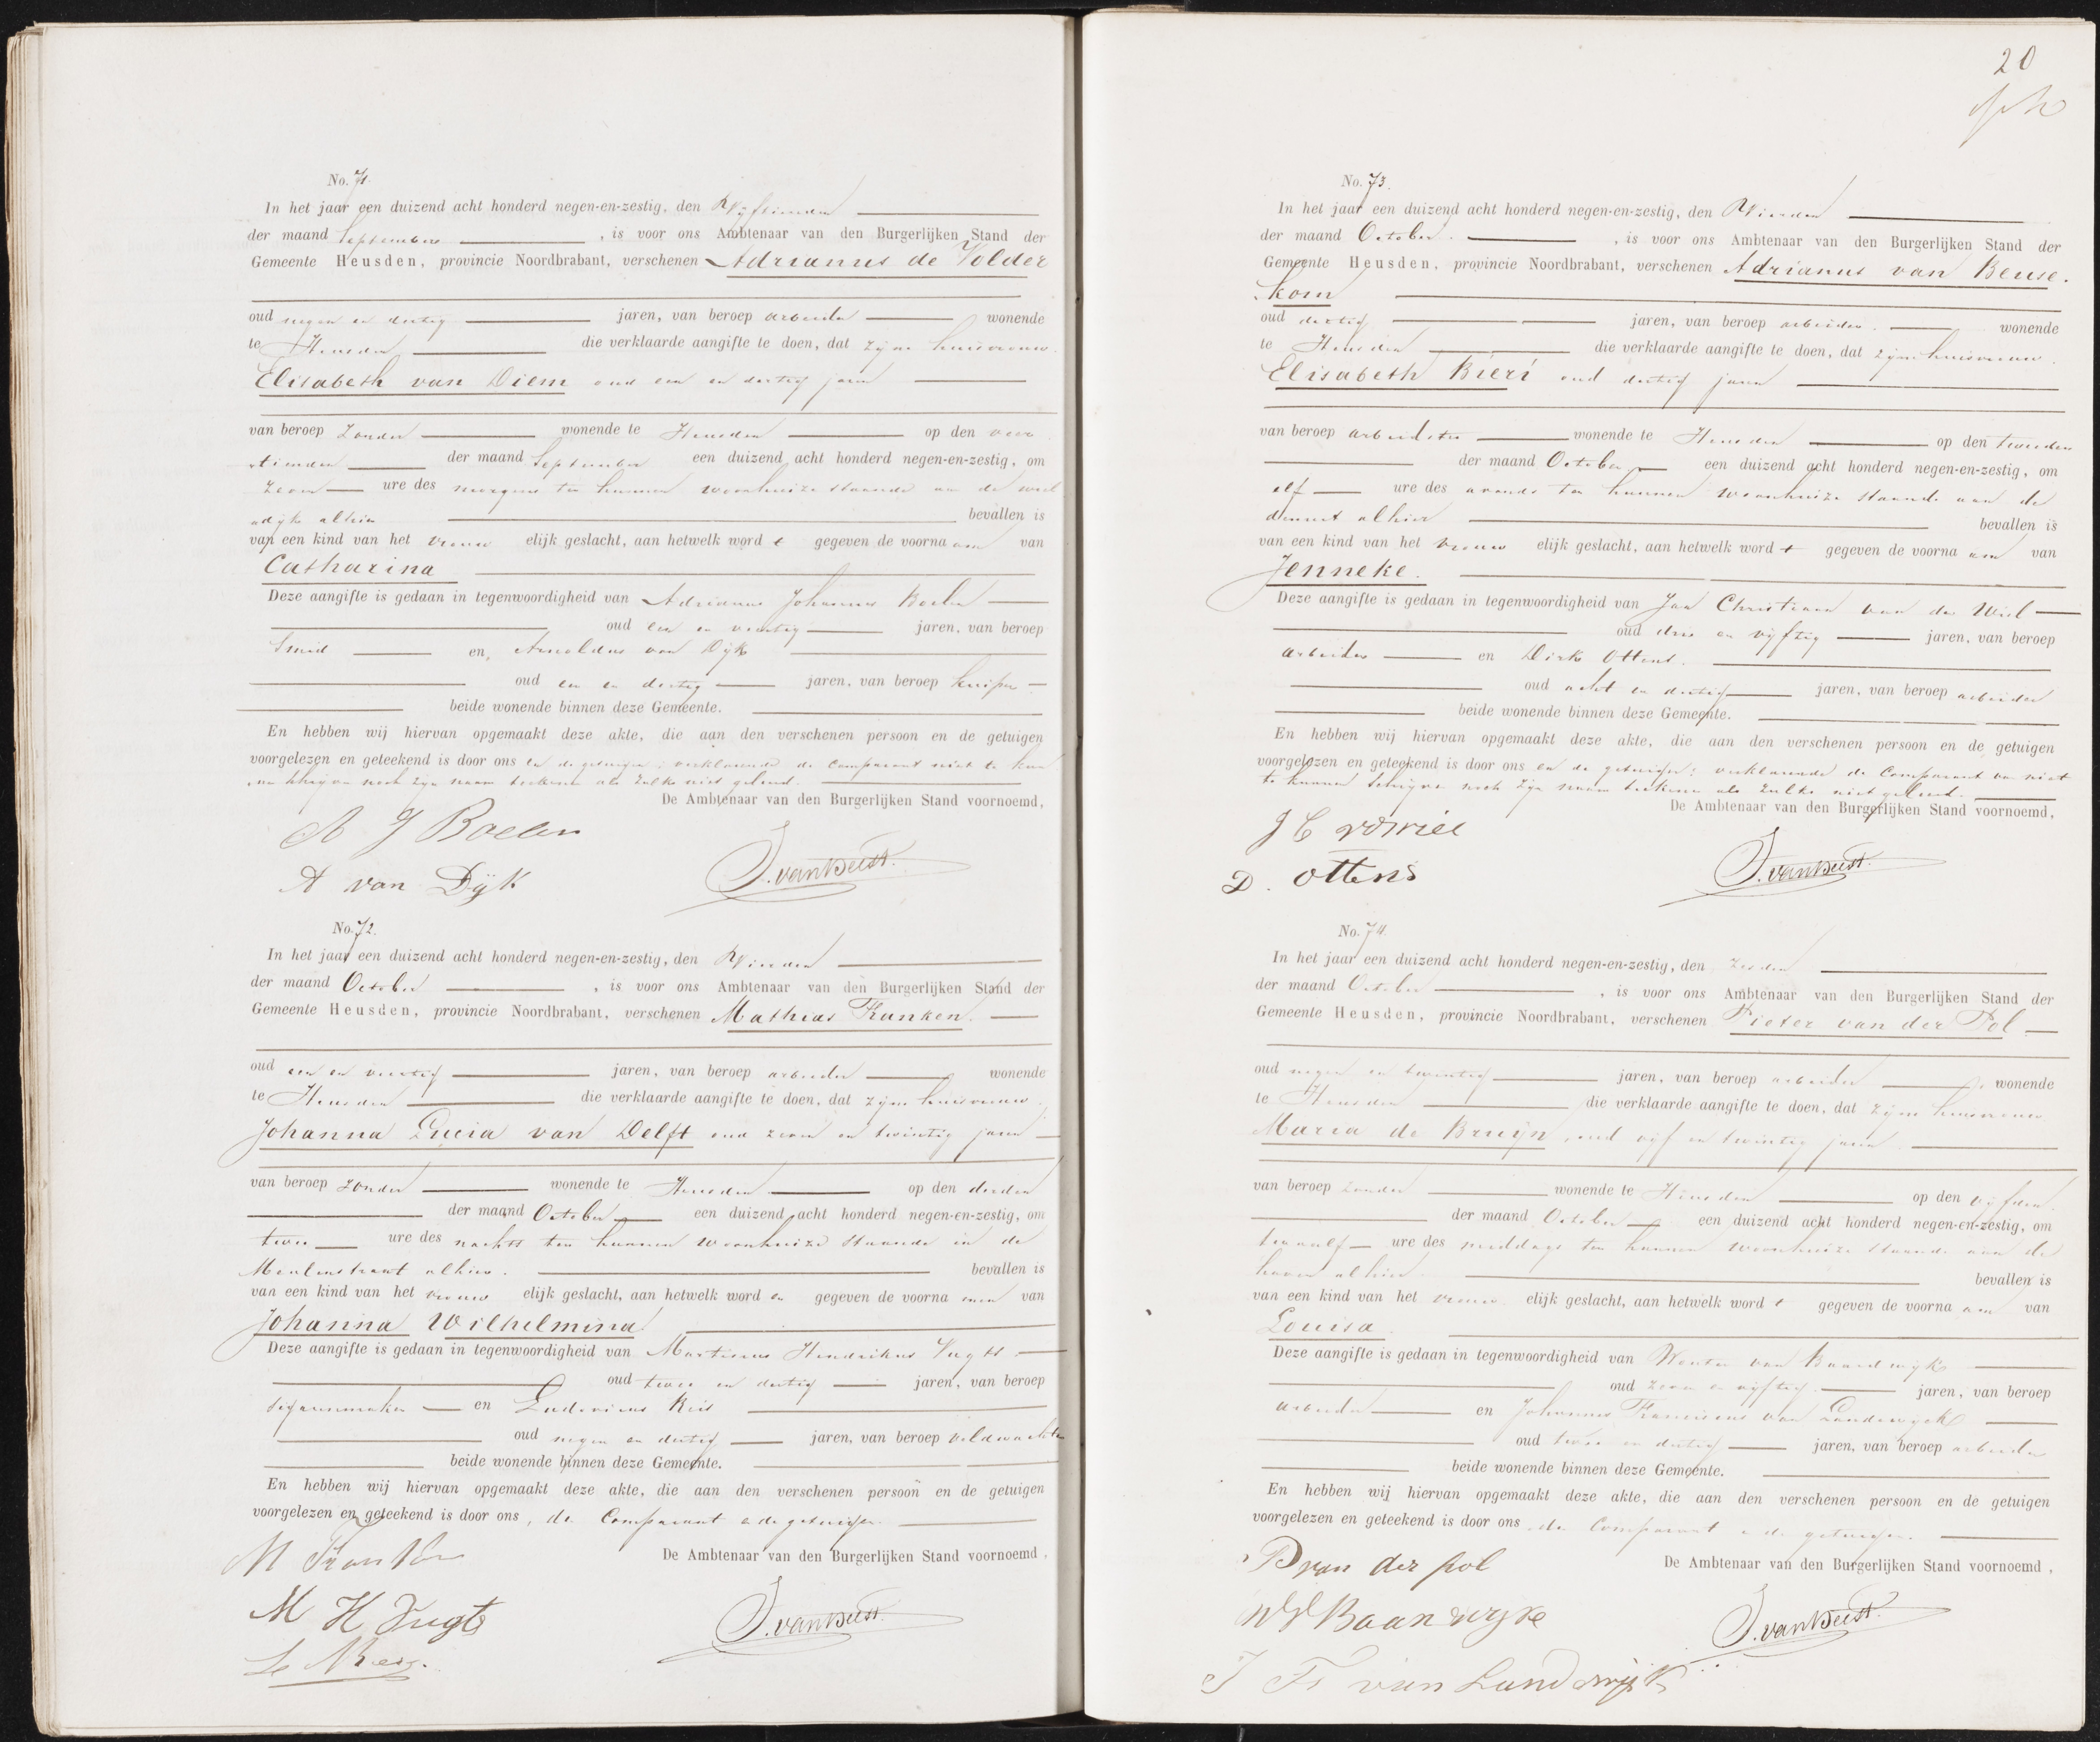 No. 71.
In het jaar een duizend acht honderd negen-en-zestig, den Vijftienden
der maand September , is voor ons Ambtenaar van den Burgerlijken Stand der
Gemeente Heusden, provincie Noordbrabant, verschenen Adrianus de Volder
oud negen en dertig jaren, van beroep arbeider wonende
te Heusden die verklaarde aangifte te doen, dat zijne huisvrouw
Elisabeth van Diem oud een en dertig jaren
van beroep zonder wonende te Heusden op den veer
tienden der maand September een duizend acht honderd negen-en-zestig, om
zeven ure des morgens ten hunnen woonhuize staande aan de wiel
adijk alhier bevallen is
van een kind van het vrouw elijk geslacht, aan hetwelk word t gegeven de voorna am van
Catharina
Deze aangifte is gedaan in tegenwoordigheid van Adrianus Johannes Boelen
oud een en veertig jaren, van beroep
Smid en, Arnoldus van Dijk
oud een en dertig jaren, van beroep kuiper
beide wonende binnen deze Gemeente.
En hebben wij hiervan opgemaakt deze akte, die aan den verschenen persoon en de getuigen
voorgelezen en geteekend is door ons en de getuigen; verklarende de Comparant niet te kun
nen schrijven noch zijn naam teekenen als zulks niet geleerd.
De Ambtenaar van den Burgerlijken Stand voornoemd,
A J Boelen
A van Dijk
J. van Beest.
No. 72.
In het jaar een duizend acht honderd negen-en-zestig, den Vierden
der maand October , is voor ons Ambtenaar van den Burgerlijken Stand der
Gemeente Heusden, provincie Noordbrabant, verschenen Mathias Franken.
oud een en veertig jaren, van beroep arbeider wonende
te Heusden die verklaarde aangifte te doen, dat zijne huisvrouw
Johanna Lucia van Delft oud zeven en twintig jaren
van beroep zonder wonende te Heusden op den derden
der maand October een duizend acht honderd negen-en-zestig, om
twee ure des nachts ten hunnen woonhuize staande in de
Meulenstraat alhier. bevallen is
van een kind van het vrouw elijk geslacht, aan hetwelk word en gegeven de voorna men van
Johanna Wilhelmina
Deze aangifte is gedaan in tegenwoordigheid van Martinus Hendrikus Vugts
oud twee en dertig jaren, van beroep
sigarenmaker en Ludovicus Reis
oud negen en dertig jaren, van beroep veldwachter
beide wonende binnen deze Gemeente.
En hebben wij hiervan opgemaakt deze akte, die aan den verschenen persoon en de getuigen
voorgelezen en geteekend is door ons, de Comparant en de getuigen.
De Ambtenaar van den Burgerlijken Stand voornoemd,
M Franken
M H Vugts
J. van Beest.
20
No. 73.
In het jaar een duizend acht honderd negen-en-zestig, den Vierden
der maand October. , is voor ons Ambtenaar van den Burgerlijken Stand der
Gemeente Heusden, provincie Noordbrabant, verschenen Adrianus van Beuse.
kom
oud dertig jaren, van beroep arbeider. wonende
te Heusden die verklaarde aangifte te doen, dat zijne huisvrouw
Elisabeth Bieri oud dertig jaren
van beroep arbeidster wonende te Heusden op den tweeden
der maand October een duizend acht honderd negen-en-zestig, om
elf ure des avonds ten hunnen woonhuize staande aan de
demert alhier bevallen is
van een kind van het vrouw elijk geslacht, aan hetwelk word t gegeven de voorna am van
Jenneke.
Deze aangifte is gedaan in tegenwoordigheid van Jan Christiaan van de Wiel
oud drie en vijftig jaren, van beroep
arbeider en Dirk Ottens.
oud acht en dertig jaren, van beroep arbeider
beide wonende binnen deze Gemeente.
En hebben wij hiervan opgemaakt deze akte, die aan den verschenen persoon en de getuigen
voorgelezen en geteekend is door ons en de getuigen: verklarende de Comparant van niet
te kunnen schrijven noch zijn naam teekenen als zulks niet geleerd.
De Ambtenaar van den Burgerlijken Stand voornoemd,
J C vd Wiel
D. Ottens
J. van Beest.
No. 74.
In het jaar een duizend acht honderd negen-en-zestig, den zesden
der maand October , is voor ons Ambtenaar van den Burgerlijken Stand der
Gemeente Heusden, provincie Noordbrabant, verschenen Pieter van der Pol
oud negen en twintig jaren, van beroep arbeider wonende
te Heusden die verklaarde aangifte te doen, dat zijne huisvrouw
Maria de Bruijn, oud vijf en twintig jaren.
van beroep zonder wonende te Heusden op den vijfden
der maand October een duizend acht honderd negen-en-zestig, om
twaalf ure des middags ten hunnen woonhuize staande aan de
haven alhier. bevallen is
van een kind van het vrouw elijk geslacht, aan hetwelk word t gegeven de voorna am van
Louisa.
Deze aangifte is gedaan in tegenwoordigheid van Wouter van Baardwijk
oud zeven en vijftig. jaren, van beroep
arbeider en Johannes Franciscus van Landewijck
oud twee en dertig jaren, van beroep arbeider
beide wonende binnen deze Gemeente.
En hebben wij hiervan opgemaakt deze akte, die aan den verschenen persoon en de getuigen
voorgelezen en geteekend is door ons de Comparant en de getuigen.
De Ambtenaar van den Burgerlijken Stand voornoemd,
P van der pol
W V Baardwyke
J. van Beest.
J Fs van Landewijk